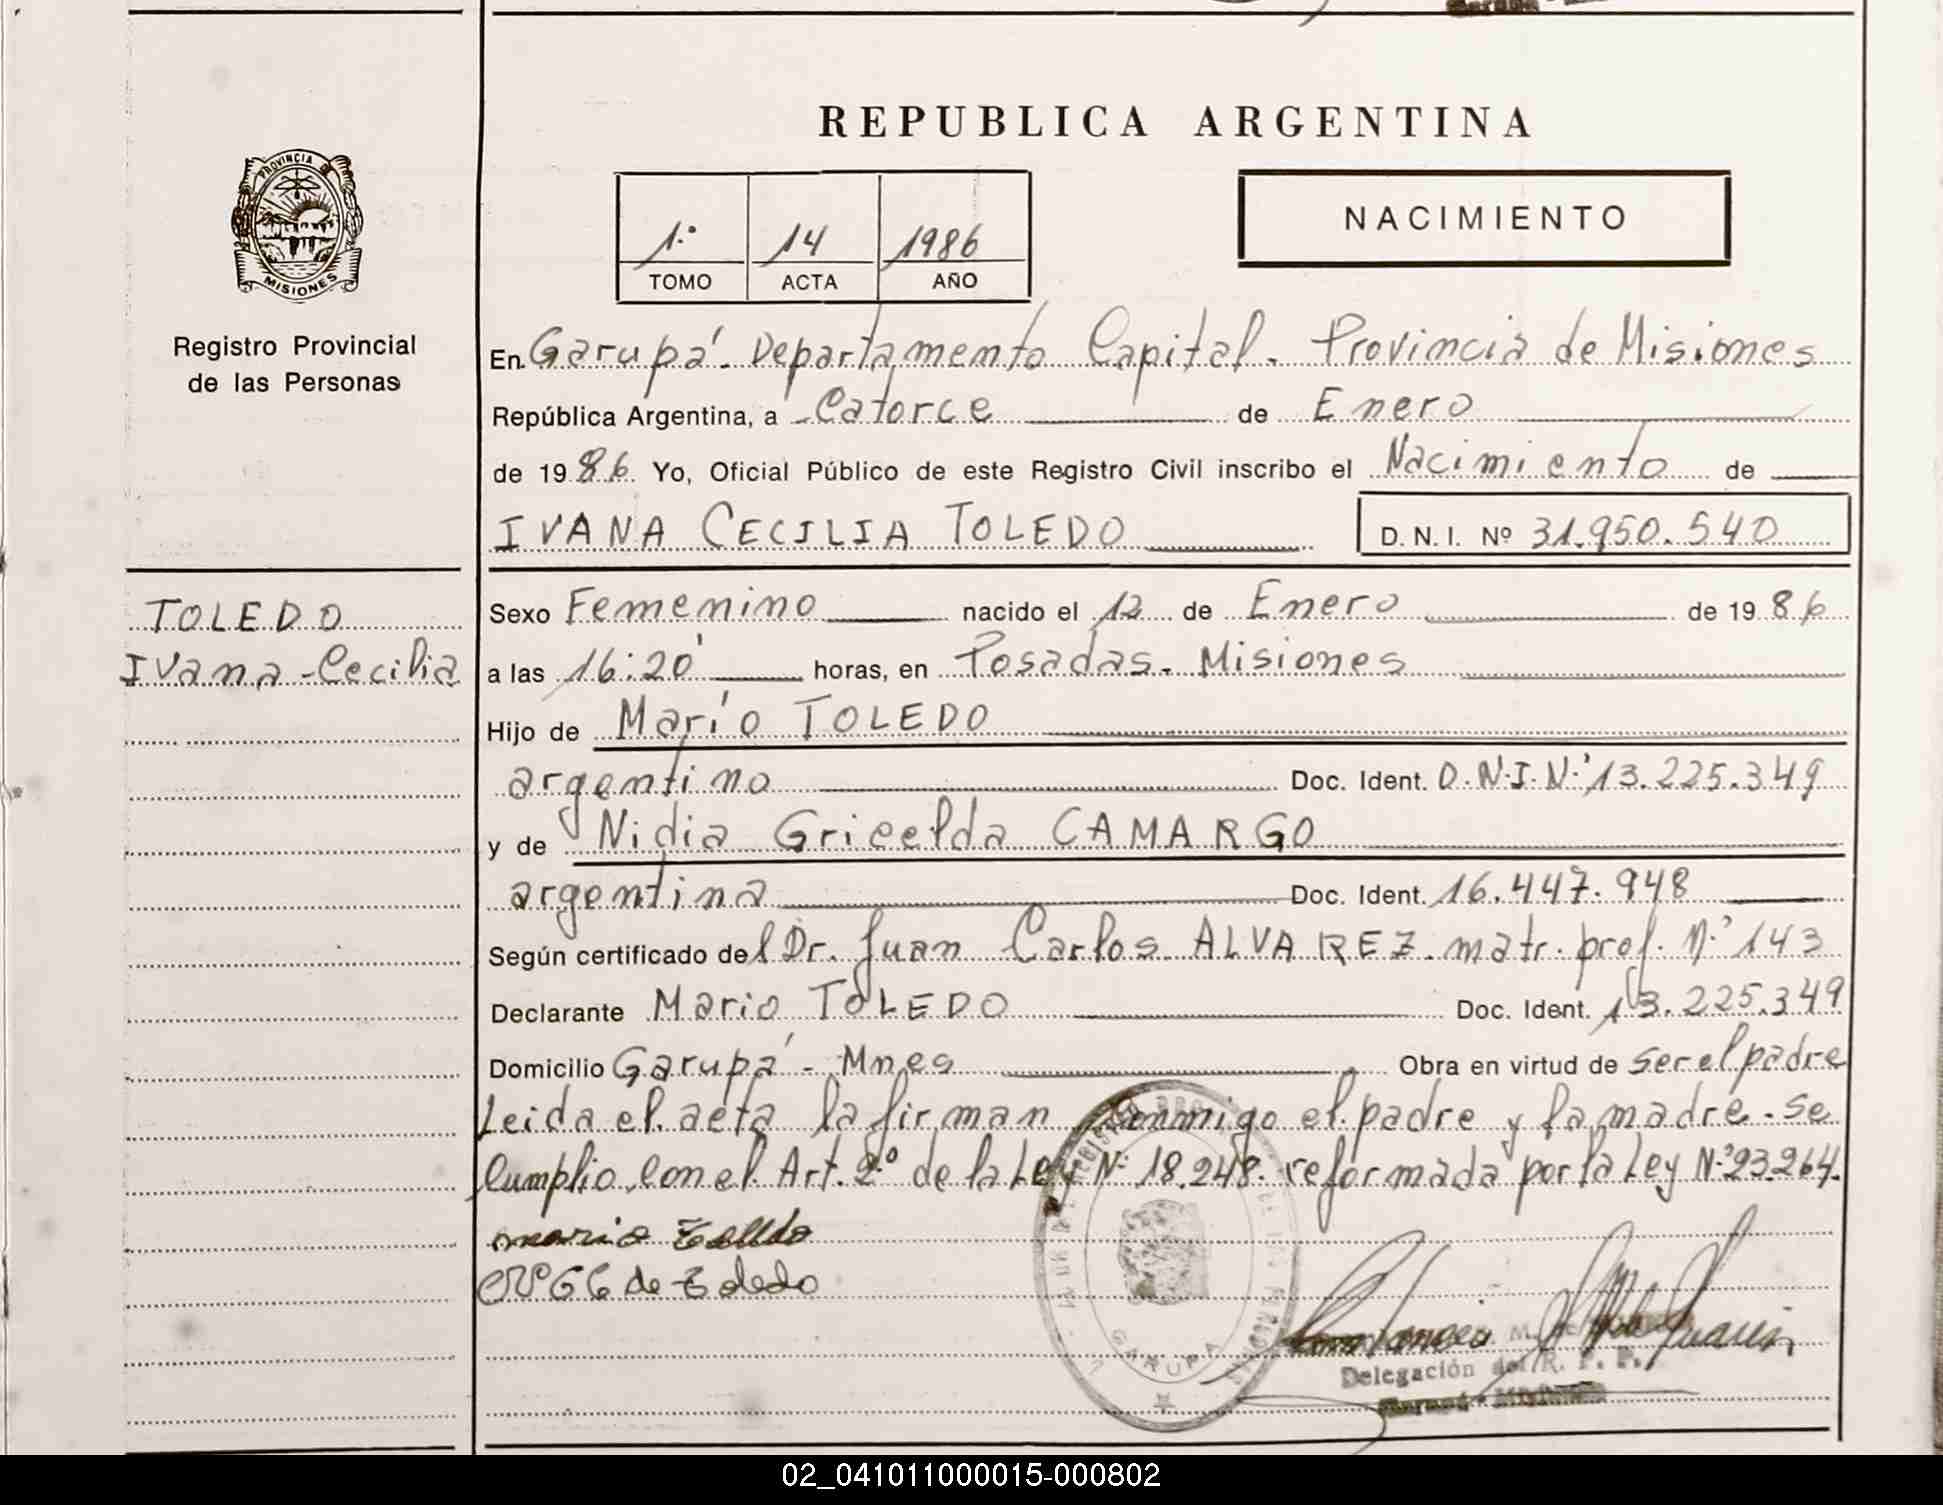 REPUBLICA ARGENTINA
PROVINCIA DE
MISIONES
Registro Provincial
de las Personas
1.º 14 1986
TOMO ACTA AÑO
NACIMIENTO
En Garupá - Departamento Capital - Provincia de Misiones
República Argentina, a Catorce de Enero
de 1986 Yo, Oficial Público de este Registro Civil inscribo el Nacimiento de
IVANA CECILIA TOLEDO D. N. I. Nº 31.950.540
TOLEDO
Ivana-Cecilia
Sexo Femenino nacido el 12 de Enero de 1986
a las 16:20 horas, en Posadas - Misiones
Hijo de Marío TOLEDO
argentino Doc. Ident. D.N.I.N.º 13.225.349
y de Nidia Gricelda CAMARGO
argentina Doc. Ident. 16.447.948
Según certificado del Dr. Juan Carlos ALVAREZ. matr. prof. N.º 143
Declarante Mario TOLEDO Doc. Ident. 13.225.349
Domicilio Garupá - Mnes Obra en virtud de ser el padre
Leida el acta la firman conmigo el padre y la madre - se
Cumplio con el Art. 2.º de la Ley N.º 18.248. reformada por la Ley N.º 23.264.
mario Toledo
de Toledo
GARUPA
Delegación del R. P. P.
Garupá - Misiones
02_041011000015-000802